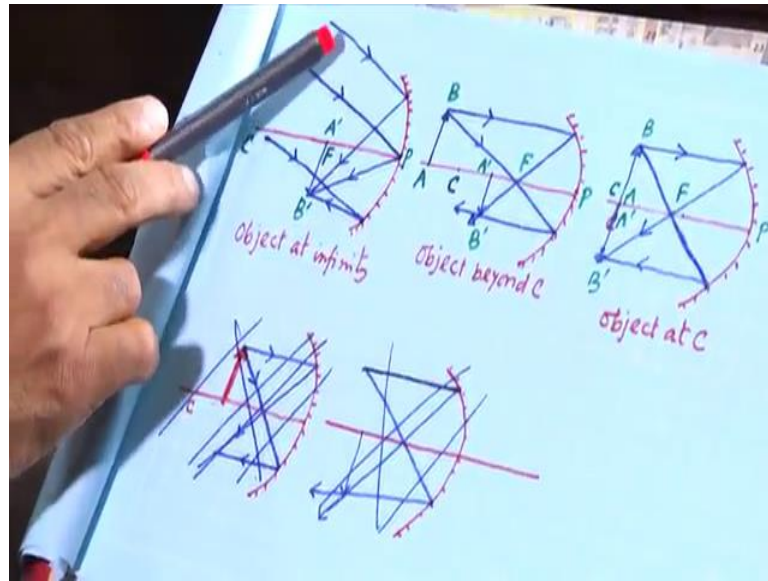 C
A'
F
P
B'
Object at infinity
B
A
C
A'
F
P
B'
Object beyond C
B
C
A
A'
F
P
B'
Object at C
C